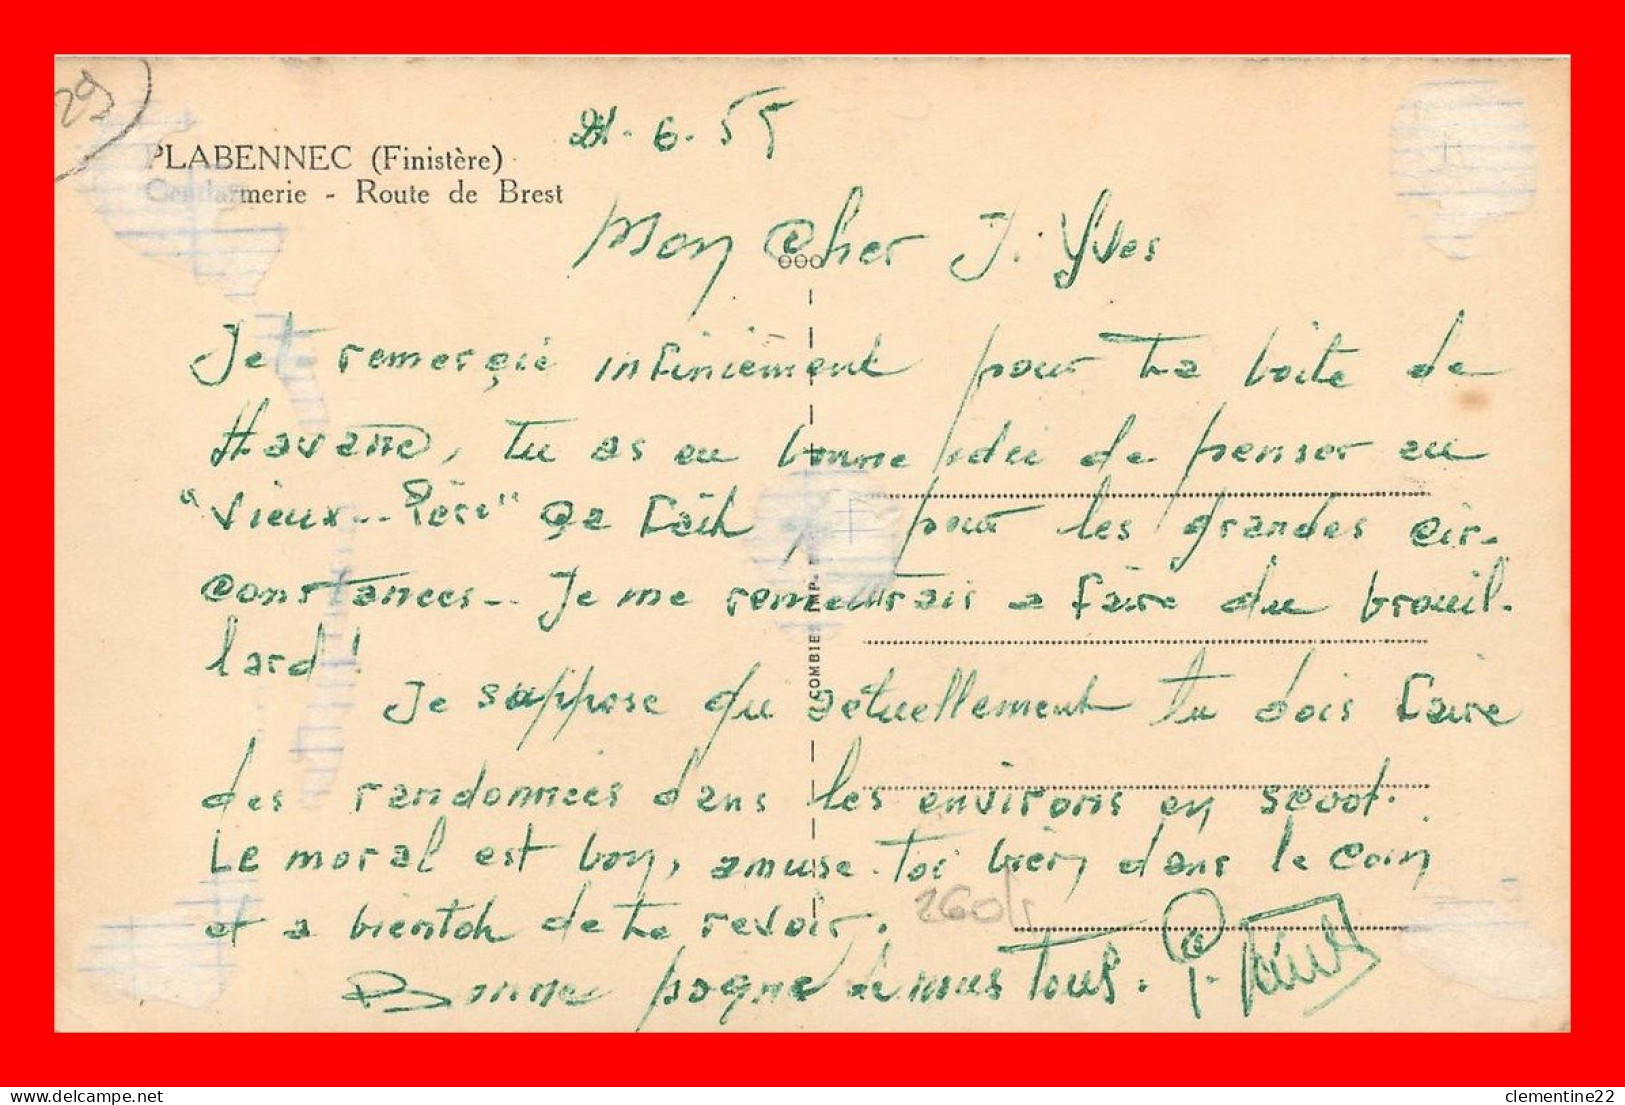 29
PLABENNEC (Finistère)
Gendarmerie - Route de Brest
21. 6. 55
Mon Cher J. Yves
Je t remerçie infiniement pour ta boite de
Havane, tu as eu bonne idée de penser au
"vieux.. Père" Ça fait pour les grandes cir-
constances.. Je me remettrais a faire du brouil-
lard !
Je suppose qu actuellement tu dois faire
des randonnées dans les environs en scoot.
Le moral est bon, amuse-toi bien dans le coin
et a bientot de te revoir.
Bonne pogne de nous tous.
260
COMBIER IMP.
delcampe.net
clementine22